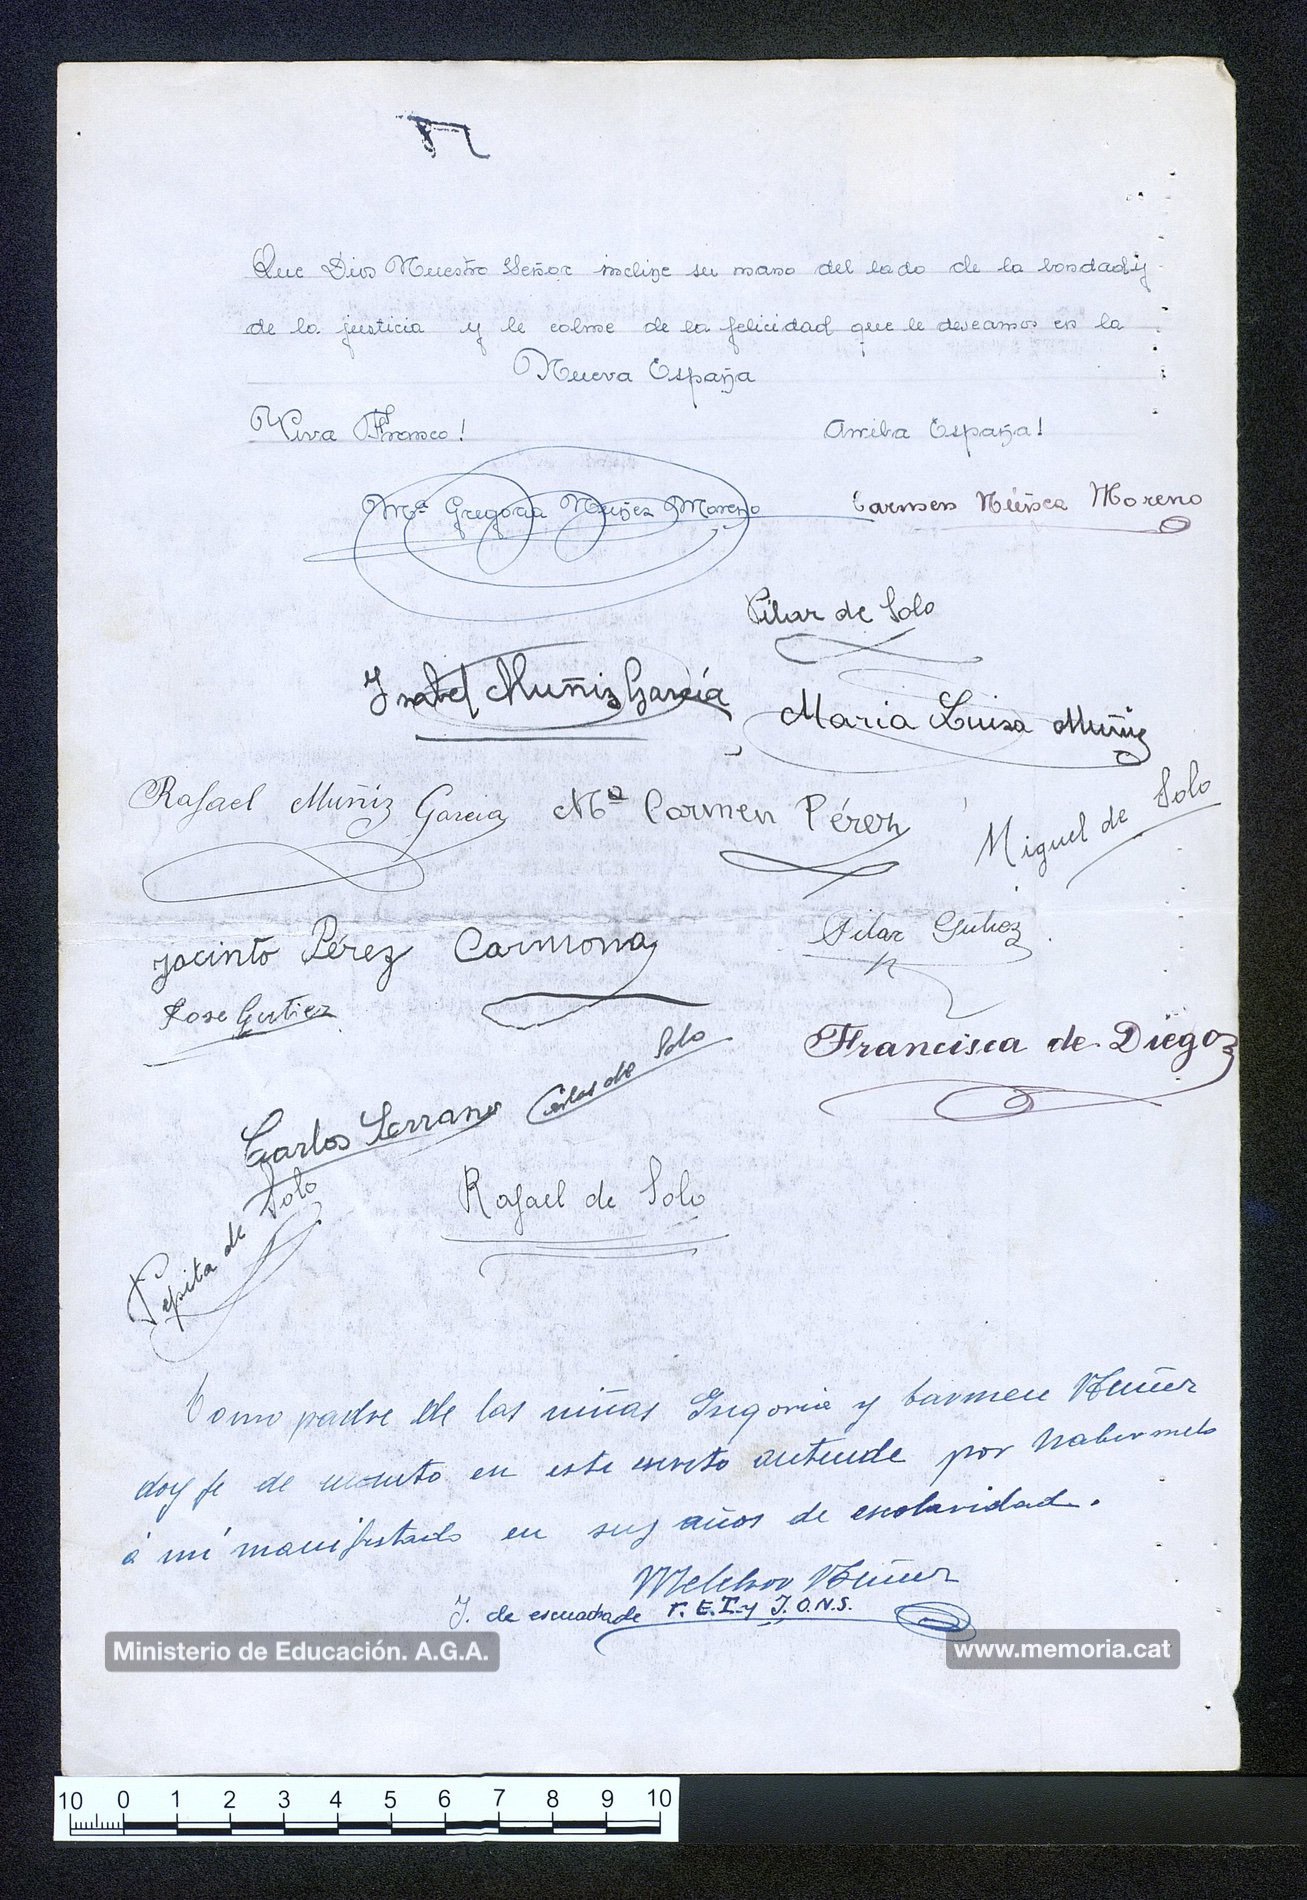 Que Dios Nuestro Señor incline su mano del lado de la bondad y
de la justicia y le colme de la felicidad que le deseamos en la
Nueva España
Viva Franco! Arriba España!
Mª Gregoria Núñez Moreno Carmen Núñez Moreno
Pilar de Solo
Isabel Muñiz García
Maria Luisa Muñiz
Rafael Muñiz Garcia Mª Carmen Pérez
Miguel de Solo
Jacinto Pérez Carmona
Pilar Gutiez
Jose Gutiez
Francisca de Diego
Carlos Serrano Carlos de Solo
Rafael de Solo
Pepita de Solo
Como padre de las niñas Gregoria y Carmen Núñez
doy fe de cuanto en este escrito antecede por habermelo
á mi manifestado en sus años de esclavidad.
Melchor Núñez
J. de escuadra de F.E.T. y J.O.N.S.
Ministerio de Educación. A.G.A.
www.memoria.cat
10 0 1 2 3 4 5 6 7 8 9 10